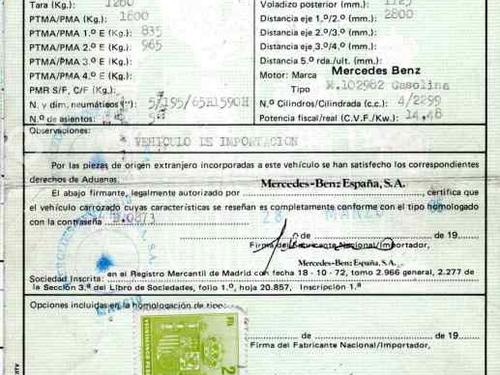 Tara (Kg.): 1260
PTMA/PMA (Kg.): 1800
PTMA/PMA 1.º E (Kg.): 835
PTMA/PMA 2.º E (Kg.): 965
PTMA/PMA 3.º E (Kg.):
PTMA/PMA 4.º E (Kg.):
PMR S/F, C/F (Kg.)
N. y dim. neumáticos 5/195/65R1590H
N.º de asientos: 5
Voladizo posterior (mm.): 1125
Distancia eje 1.º/2.º (mm.): 2800
Distancia eje 2.º/3.º (mm.):
Distancia eje 3.º/4.º (mm.):
Distancia 5.0 rda./ult. (mm.):
Motor: Marca Mercedes Benz
Tipo M.102982 Gasolina
N.º Cilindros/Cilindrada (c.c.): 4/2299
Potencia fiscal/real (C.V.F./Kw.): 14,48
Observaciones:
VEHICULO DE IMPORTACION
Por las piezas de origen extranjero incorporadas a este vehículo se han satisfecho los correspondientes
derechos de Aduanas.
El abajo firmante, legalmente autorizado por Mercedes-Benz España, S.A. , certifica que
el vehículo carrozado cuyas características se reseñan es completamente conforme con el tipo homologado
con la contraseña 28 MARZO
de de 19
Firma del Fabricante Nacional/Importador,
Mercedes-Benz España, S.A.
Sociedad Inscrita: en el Registro Mercantil de Madrid con fecha 18 - 10 - 72, tomo 2.966 general, 2.277 de
la Sección 3.ª del Libro de Sociedades, folio 1.º, hoja 20.857, Inscripción 1.ª
Opciones incluidas en la homologación de tipo:
de de 19
Firma del Fabricante Nacional/Importador,